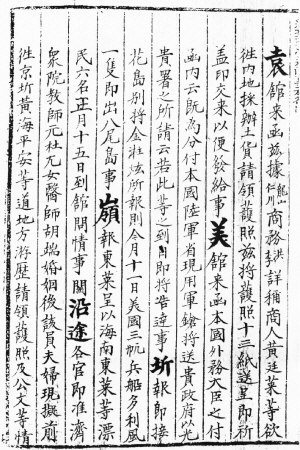 袁館来函茲據龍山仁川商務洪詳稱商人黃廷某等欲
徃内地採辦土貨請領護照茲将護照十三紙送呈即祈
盖印交来以便發給事美館来函本國外務大臣之付
函内云旣為分付本國陸軍省現用軍鎗将送貴政府以允
貴署之所請云若此等之到日即将告達事圻報即接
花島別将金壯炫所報則今月十一日美國三帆兵船多利風
一隻即出八尾島事嶺報東莱呈以海南東莱等漂
民六名正月十五日到館問情事關沿途各官即准濟
衆院教師元杜尤女醫師胡端婚姻後該員夫婦現擬前
徃京圻黃海平安等道地方游歷請領護照及公文等情